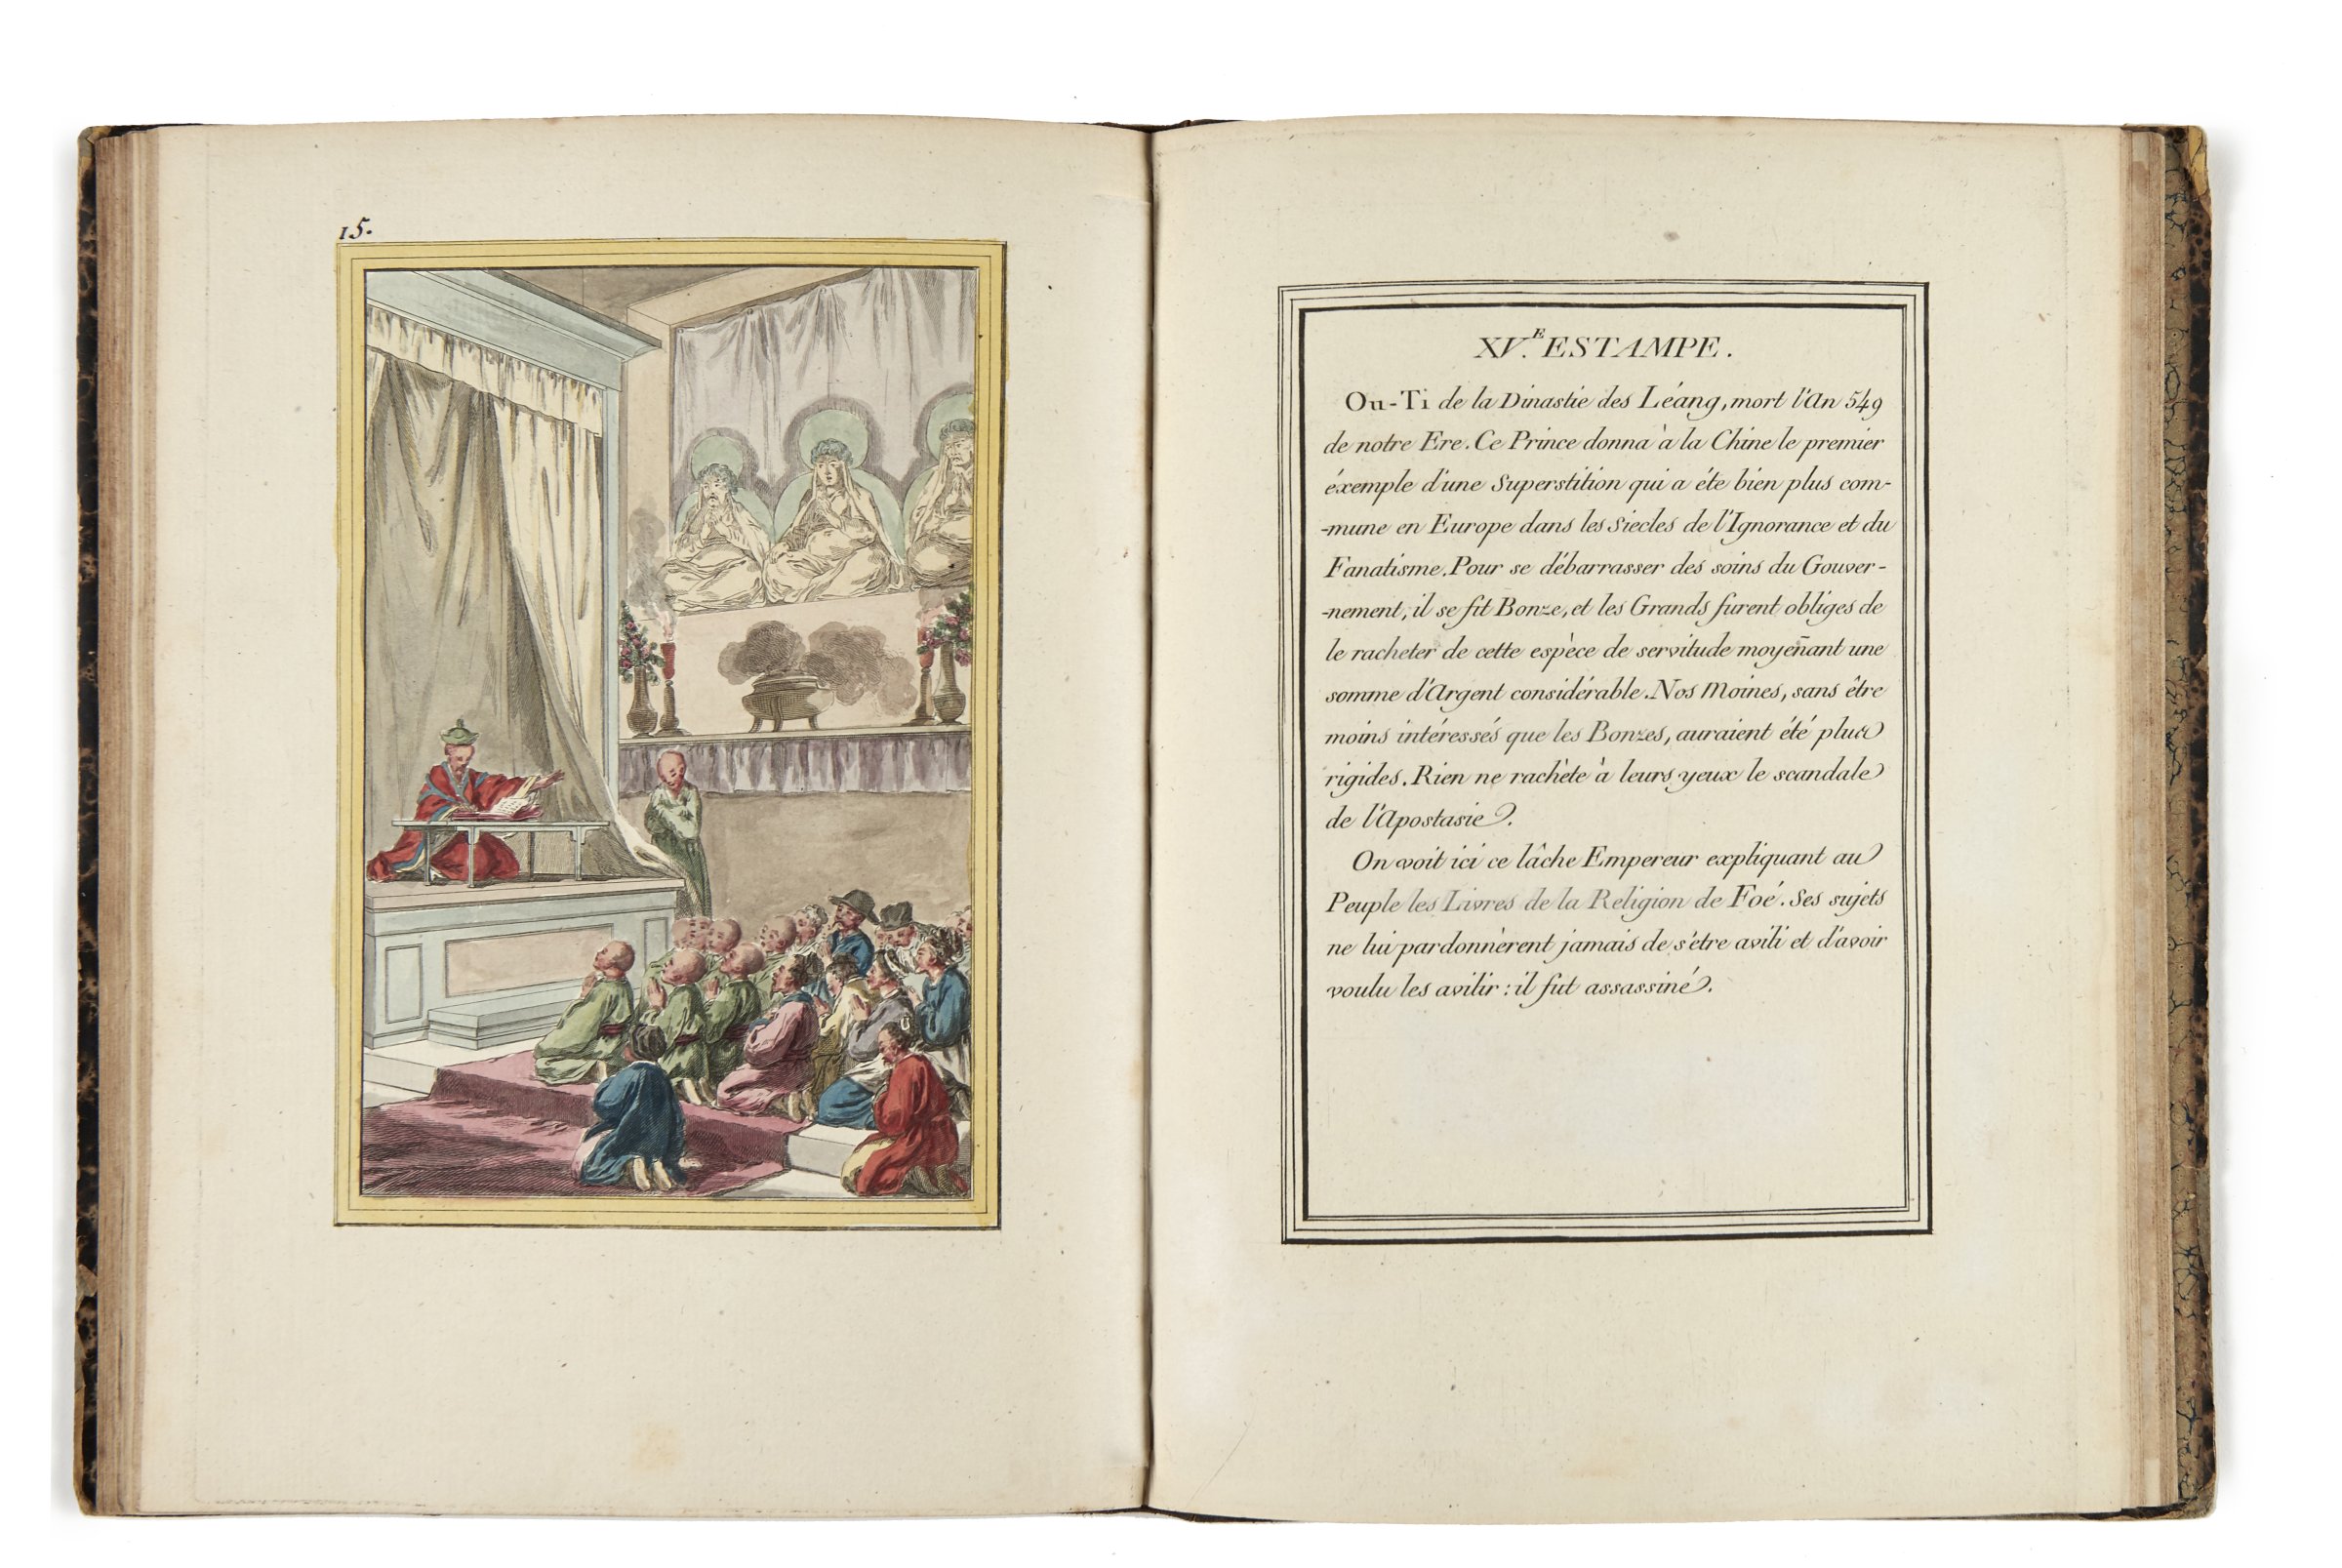 15.
XV.E ESTAMPE.
Ou-Ti de la Dinastie des Léang, mort l'An 549
de notre Ere. Ce Prince donna à la Chine le premier
éxemple d'une Superstition qui a éte bien plus com-
-mune en Europe dans les Siecles de l'Ignorance et du
Fanatisme. Pour se débarrasser des soins du Gouver-
-nement, il se fit Bonze, et les Grands furent obliges de
le racheter de cette espèce de servitude moyeñant une
somme d'Argent considérable. Nos Moines, sans être
moins intéressés que les Bonzes, auraient été plus
rigides. Rien ne rachète à leurs yeux le scandale
de l'Apostasie.
On voit ici ce lâche Empereur expliquant au
Peuple les Livres de la Religion de Foé. Ses sujets
ne lui pardonnèrent jamais de s'étre avili et d'avoir
voulu les avilir : il fut assassiné.